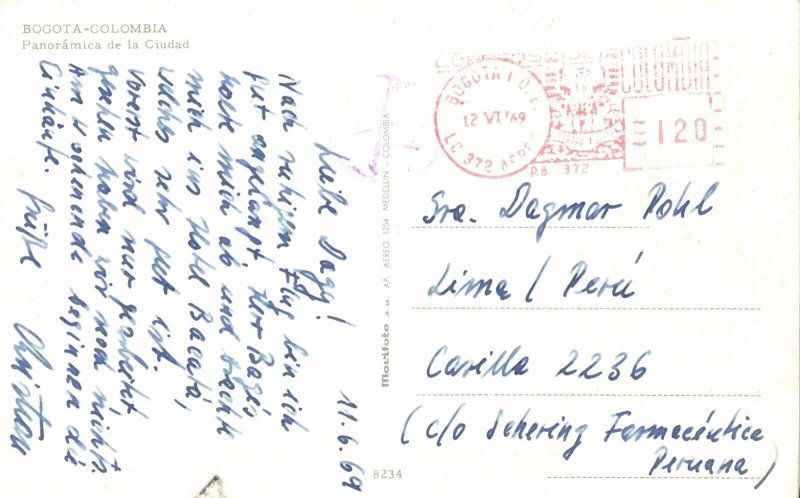 BOGOTA-COLOMBIA
Panorámica de la Ciudad
11.6.69
Liebe Dagy!
Nach ruhigem Flug bin ich
gut angelangt. Herr Bagés
holte mich ab und brachte
mich ins Hotel Bacatá,
welches sehr nett ist.
Vorerst wird nur gearbeitet,
gesehen haben wir noch nichts.
Am Wochenende beginnen die
Einkäufe. Grüße
Christian
Movifoto s.a. AP. AEREO 1254 MEDELLIN - COLOMBIA
8234
BOGOTA 1 D.E.
12 VI '69
LC 372 AEREO
COLOMBIA
120
P.B. 372
Sra. Dagmar Pohl
Lima / Perú
Casilla 2236
(c/o Schering Farmacéutica
Peruana)